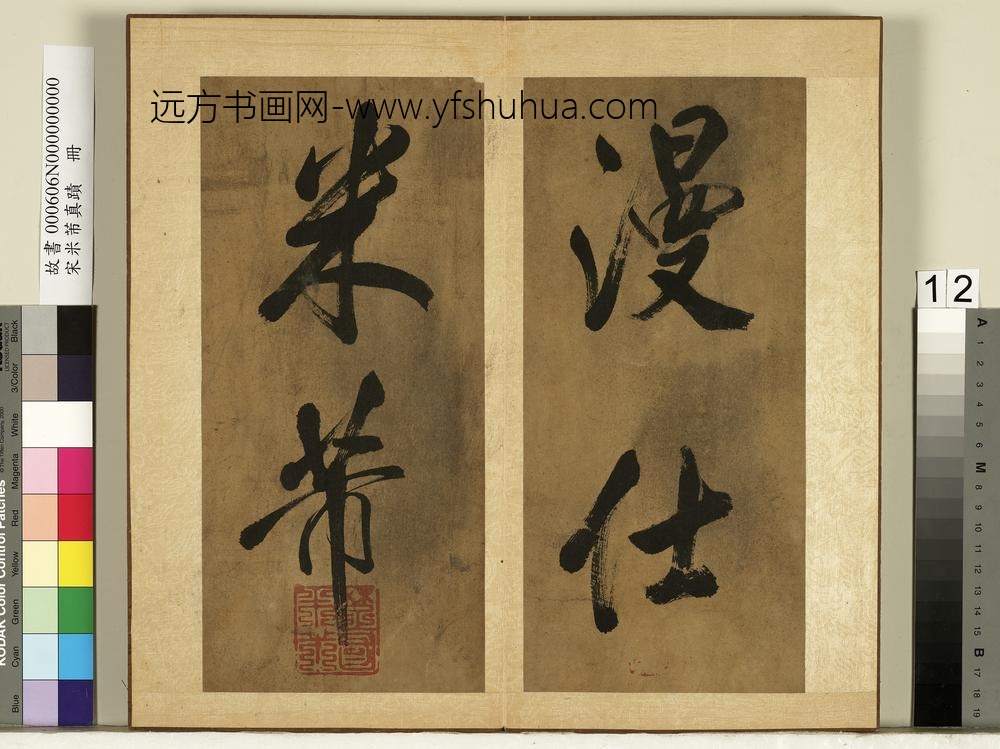 远方书画网-www.yfshuhua.com
漫仕
米芾
故書 000606N000000000
宋米芾真蹟 冊
12
Black
3/Color
White
Magenta
Red
Yellow
Green
Cyan
Blue
KODAK Color Control Patches
A 1 2 3 4 5 6 M 8 9 10 11 12 13 14 15 B 17 18 19